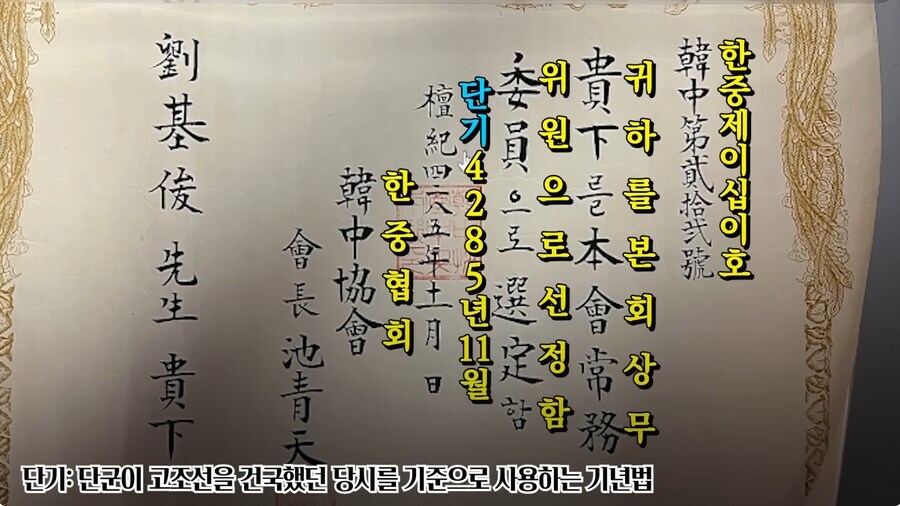 한중제이십이호
韓中第貳拾弐號
귀하를본회상무
貴下를本會常務
위원으로선정함
委員으로選定함
단기4285년11월
檀紀四二八五年十一月 日
한중협회
韓中協會
會長 池青天
劉基俊先生 貴下
단기: 단군이 고조선을 건국했던 당시를 기준으로 사용하는 기년법